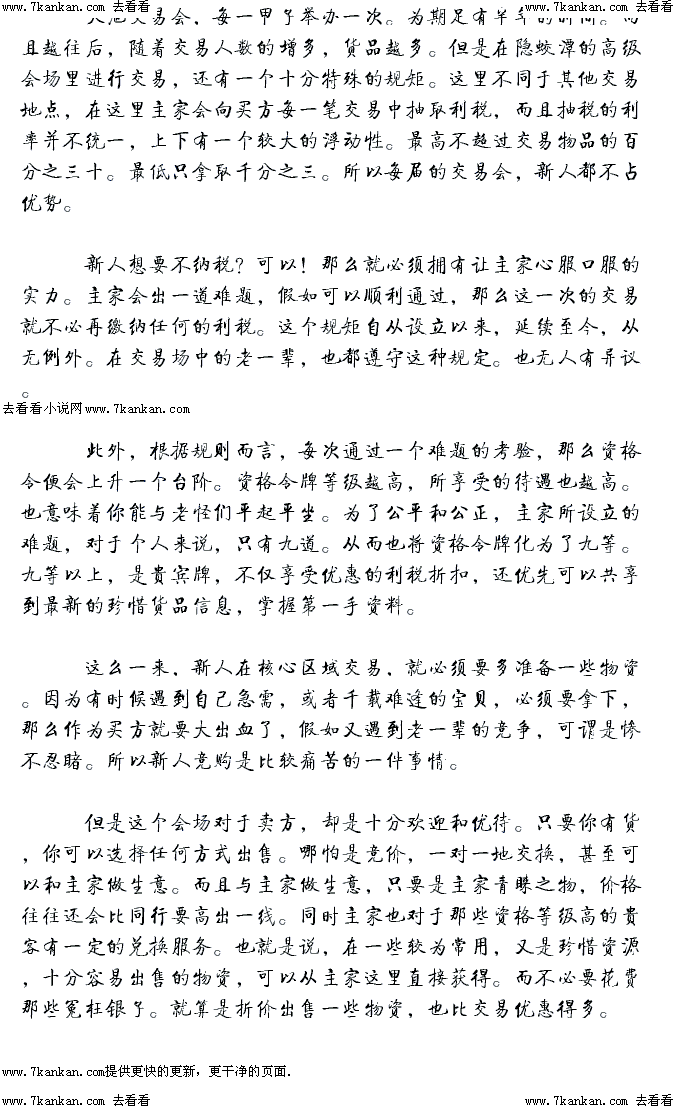 www.7kankan.com 去看看 www.7kankan.com 去看看
交易会，每一甲子举办一次。为期足有半年的时间。而
且越往后，随着交易人数的增多，货品越多。但是在隐蛟潭的高级
会场里进行交易，还有一个十分特殊的规矩。这里不同于其他交易
地点，在这里主家会向买方每一笔交易中抽取利税，而且抽税的利
率并不统一，上下有一个较大的浮动性。最高不超过交易物品的百
分之三十。最低只拿取千分之三。所以每届的交易会，新人都不占
优势。
新人想要不纳税？可以！那么就必须拥有让主家心服口服的
实力。主家会出一道难题，假如可以顺利通过，那么这一次的交易
就不必再缴纳任何的利税。这个规矩自从设立以来，延续至今，从
无例外。在交易场中的老一辈，也都遵守这种规定。也无人有异议
。
去看看小说网www.7kankan.com
此外，根据规则而言，每次通过一个难题的考验，那么资格
令便会上升一个台阶。资格令牌等级越高，所享受的待遇也越高。
也意味着你能与老怪们平起平坐。为了公平和公正，主家所设立的
难题，对于个人来说，只有九道。从而也将资格令牌化为了九等。
九等以上，是贵宾牌，不仅享受优惠的利税折扣，还优先可以共享
到最新的珍惜货品信息，掌握第一手资料。
这么一来，新人在核心区域交易，就必须要多准备一些物资
。因为有时候遇到自己急需，或者千载难逢的宝贝，必须要拿下，
那么作为买方就要大出血了，假如又遇到老一辈的竞争，可谓是惨
不忍睹。所以新人竞购是比较痛苦的一件事情。
但是这个会场对于卖方，却是十分欢迎和优待。只要你有货
，你可以选择任何方式出售。哪怕是竞价，一对一地交换，甚至可
以和主家做生意。而且与主家做生意，只要是主家青睐之物，价格
往往还会比同行要高出一线。同时主家也对于那些资格等级高的贵
客有一定的兑换服务。也就是说，在一些较为常用，又是珍惜资源
，十分容易出售的物资，可以从主家这里直接获得。而不必要花费
那些冤枉银子。就算是折价出售一些物资，也比交易优惠得多。
www.7kankan.com提供更快的更新，更干净的页面.
www.7kankan.com 去看看 www.7kankan.com 去看看